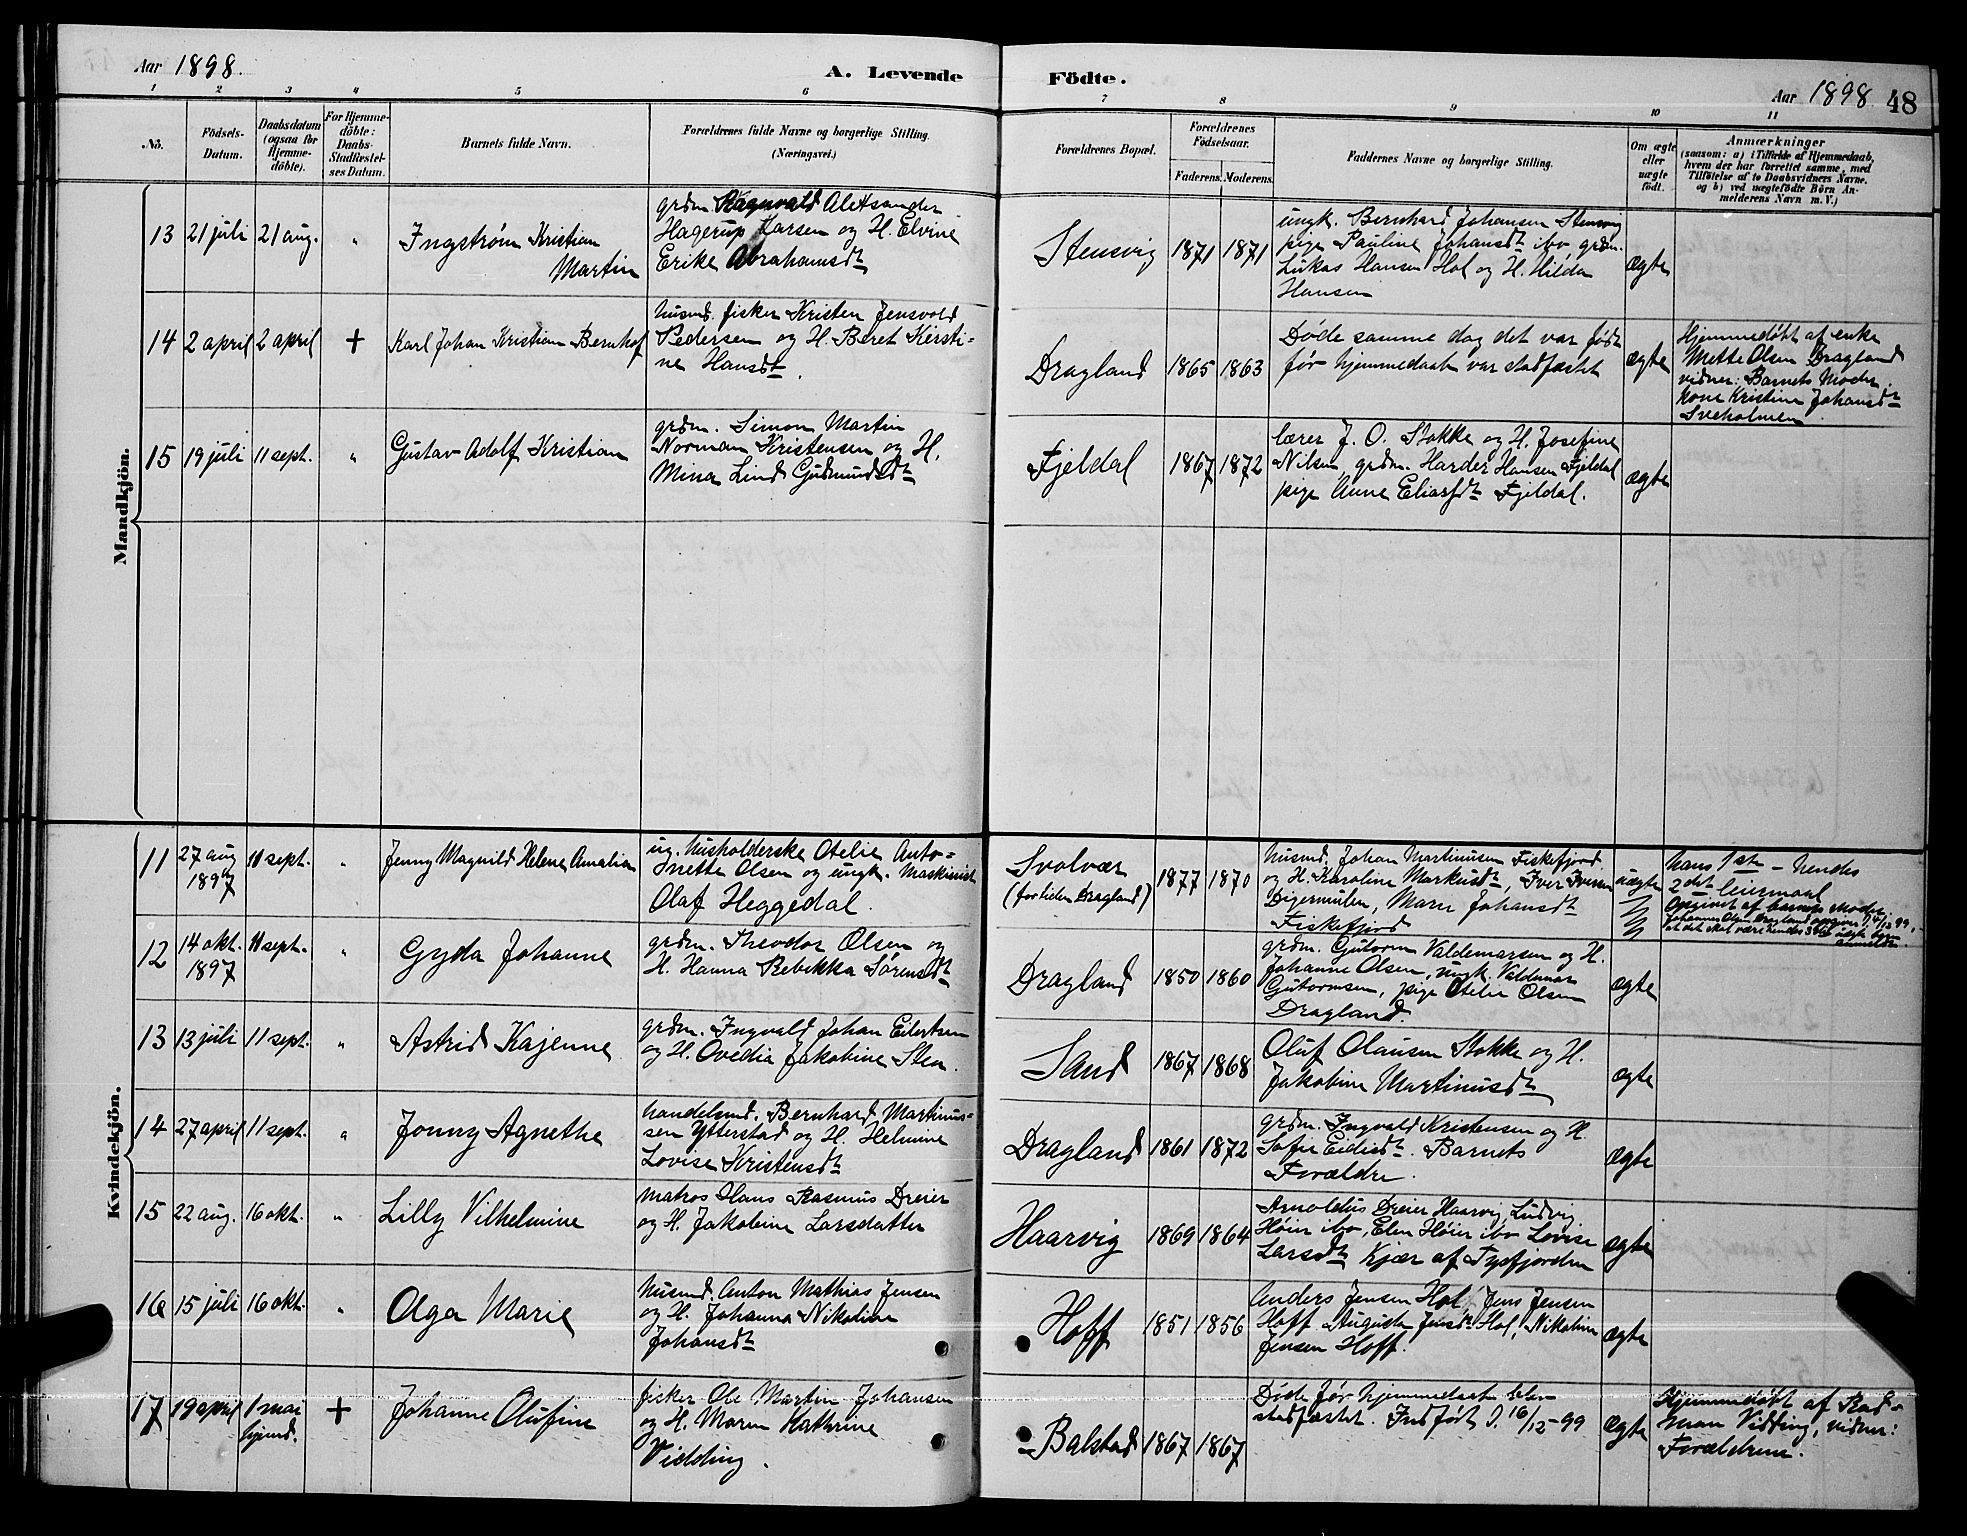 Aar 1898.
A. Levende Födte.
Aar 1898 48
1 2 3 4 5 6 7 8 9 10 11
No.
Födsels-Datum.
Daabsdatum (ogsaa for Hjemme-döbte).
For Hjemme-döbte: Daabs-Stadfæstel-ses Datum.
Barnets fulde Navn.
Forældrenes fulde Navne og borgerlige Stilling. (Næringsvei.)
Forældrenes Bopæl.
Forældrenes Födselsaar.
Faderens. Moderens.
Faddernes Navne og borgerlige Stilling.
Om ægte eller uægte födt.
Anmærkninger
(saasom: a) i Tilfælde af Hjemmedaab,
hvem der har forrettet samme, med
Tilföielse af to Daabsvidners Navne.
og b) ved uægtefödte Börn An-
melderens Navn m. V.)
Mandkjön.
13 21 juli 21 aug. "
Ingstrøm Kristian
Martin
grdm Ragnvald Aleksander
Hagerup Larsen og H. Elvine
Erike Abrahamsdt
Stensvig 1871 1871
ungk. Bernhard Johansen Stensvig
pige Pauline Johansdt ibo grdm.
Lukas Hansen Hol og H. Hilda
Hansen
ægte
14 2 april 2 april +
Karl Johan Kristian Bernhof
husmd. fisker Kristen Jensvold
Pedersen og H. Beret Kirsti=
ne Hansdt.
Dragland 1865 1863
Døde samme dag det var født
før hjemmedaab var stadfæstet
ægte
Hjemmedøbt af enke
Mette Olsen Dragland
vidner: Barnets Moder.
kone Kristine Johansdt
Sveholmen.
15 19 juli 11 sept. "
Gustav Adolf Kristian
grdm. Simon Martin
Norman Kristensen og H.
Mina Lind Gudmundsdt
Fjeldal 1867 1872
lærer J. O. Stokke og H. Josefine
Nilsen, grdm. Harder Hansen Fjeldal
pige Anne Eliasdt Fjeldal.
ægte
Kvindekjön.
11 27 aug 1897 11 sept. "
Jenny Magnild Helene Amalia
ug. husholderske Otelie Anto=
nette Olsen og ungk. Maskinist
Olaf Heggedal.
Svolvær
(for tiden Dragland)
1877 1870
husmd. Johan Martinusen Fiskefjord
og H. Karoline Markusdt, Iver Iversen
Digermulen, Maren Johansdt
Fiskefjord
uægte
hans 1ste - hendes
2det leiermaal
Opgivet af barnets Moder
Johannes Olsen Dragland opgiver
at det skal være hendes 3die uægte barn
12 14 okt. 1897 11 sept. "
Gyda Johanne
grdm. Theodor Olsen og
H. Hanna Rebikka Sørensdt
Dragland 1850 1860
grdm. Gutorm Valdemarsen og H.
Johanne Olsen, ungk. Valdemar
Gutormsen, pige Otelie Olsen
Dragland.
ægte
13 13 juli 11 sept. "
Astrid Kajenne
grdm. Ingvald Johan Eilertsen
og H. Ovedia Jakobine Sten.
Sand 1867 1868
Oluf Olausen Stokke og H.
Jakobine Martinusdt
ægte
14 27 april 11 sept. "
Jonny Agnethe
handelsmd. Bernhard Martinus=
sen Ytterstad og H. Helmine
Lovise Kristensdt
Dragland 1861 1872
grdm. Ingvald Kristensen og H.
Sofie Eidisdt. Barnets
Forældre.
ægte
15 22 aug. 16 okt. "
Lilly Vilhelmine
matros Hans Rasmus Dreier
og H. Jakobine Larsdatter
Haarvig 1869 1864
Arnoldus Dreier Haarvig, Ludvig
Høier ibo, Elen Høier ibo Lovise
Larsdt Kjær af Tysfjorden
ægte
16 15 juli 16 okt. "
Olga Marie
husmd. Anton Mathias Jensen
og H. Johanna Nikoline
Johansdt
Hoff 1851 1856
Anders Jensen Hol, Jens Jensen
Hoff. Augusta Jensdt Hol, Nikoline
Jensen Hoff.
ægte
17 19 april 1 mai hjemd. +
Johanne Olufine
fisker Ole Martin Johansen
og H. Maren Kathrine
Vidding.
Balstad 1867 1867
Døde før hjemmedaab blev
stadfæstet. Indført d. 16/12-99
ægte
Hjemmedøbt af Rad=
man Vidding, vidner:
Forældrene.